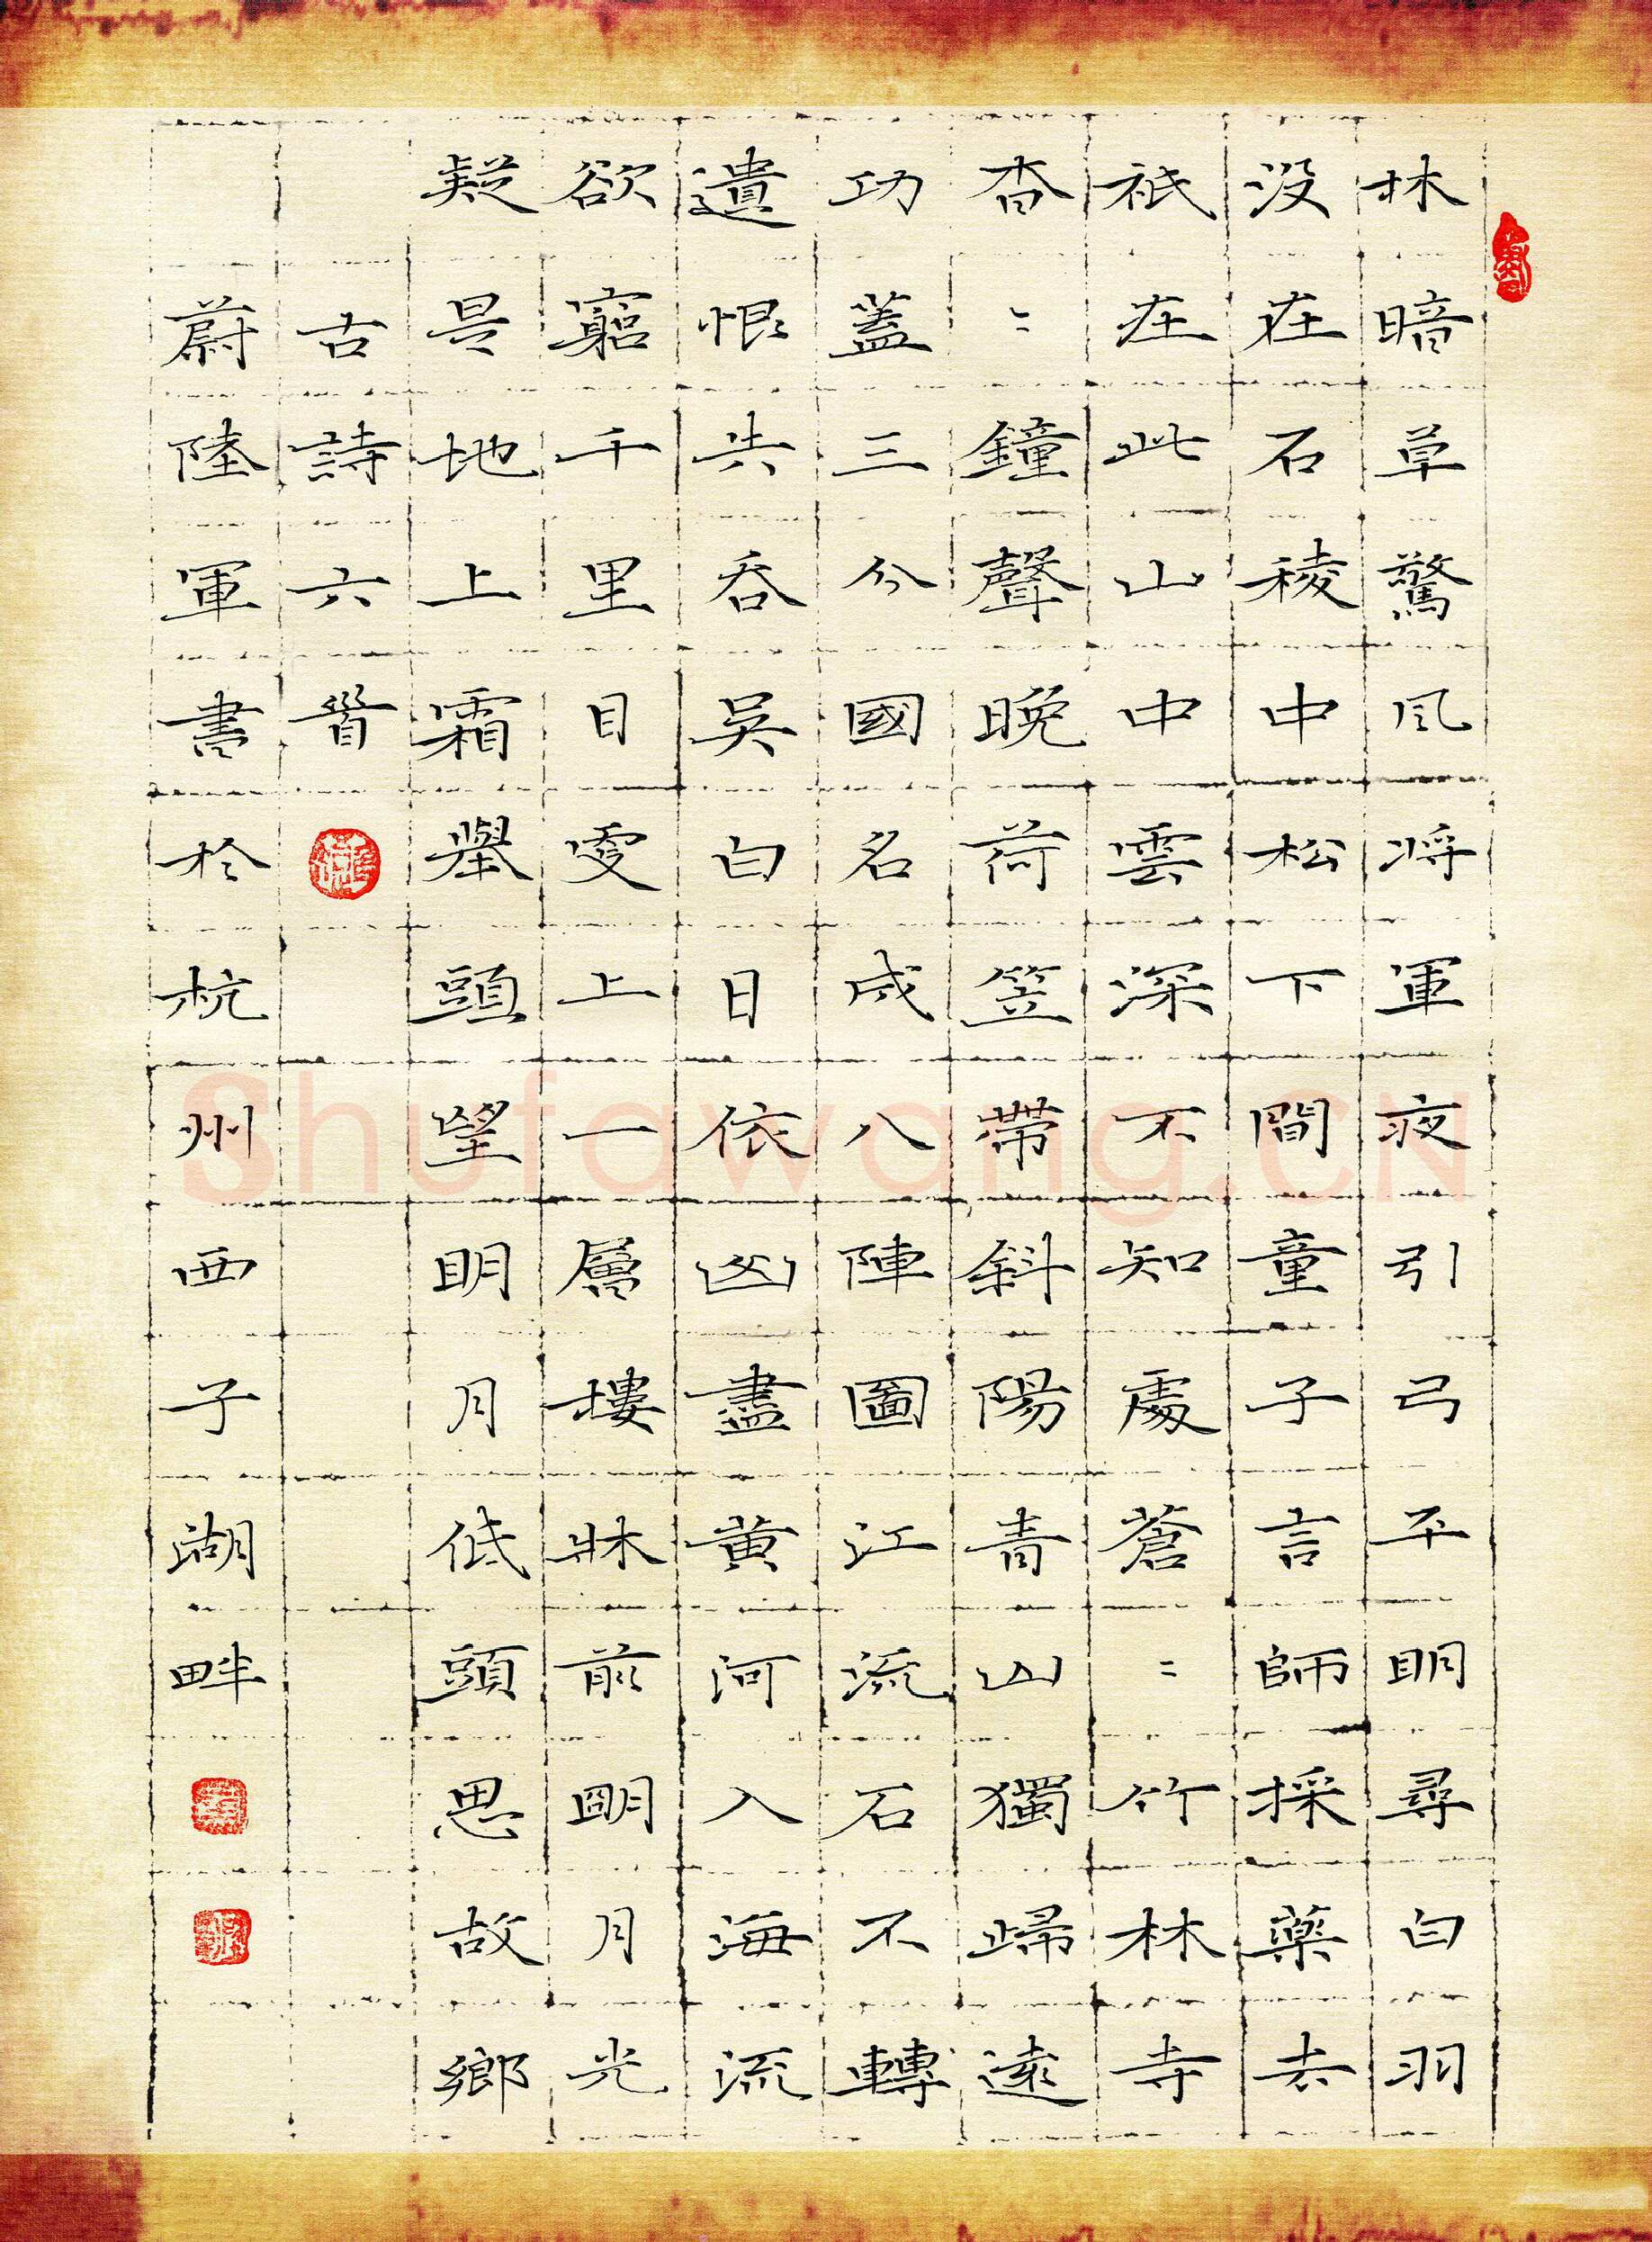 林暗草驚風将軍夜引弓平明尋白羽
没在石稜中松下間童子言師採藥去
祇在此山中雲深不知處蒼〻竹林寺
杳〻鐘聲晚荷笠帶斜陽青山獨歸遠
功蓋三分國名成八陣圖江流石不轉
遺恨失吞吳白日依山盡黃河入海流
欲窮千里目更上一層樓牀前明月光
疑是地上霜舉頭望明月低頭思故鄉
古詩六首
蔚陸軍書於杭州西子湖畔
Shufawang.CN